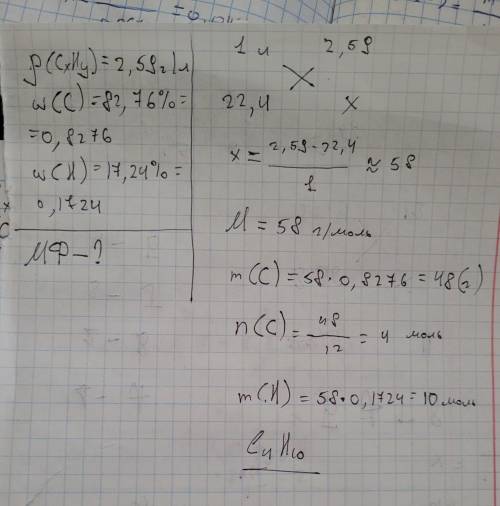 ρ(CxHy) = 2,59 г/л
w(C) = 82,76% =
= 0,8276
w(H) = 17,24% =
0,1724
МФ - ?
1 л 2,59
22,4 x
x = 2,59 - 22,4 / 1 ≈ 58
M = 58 г/моль
m(C) = 58 · 0,8276 = 48(г)
n(C) = 48 / 12 = 4 моль
m(H) = 58 · 0,1724 = 10 моль
C4H10